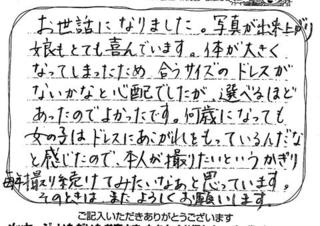 お世話になりました。写真が出来上がり
娘もとても喜んでいます。体が大きく
なってしまったため、合うサイズのドレスが
ないかなと心配でしたが、選べるほど
あったのでよかったです。何歳になっても
女の子はドレスにあこがれをもっているんだな
と感じたので、本人が撮りたいというかぎり
毎年撮り続けてみたいなぁと思っています。
そのときは、またよろしくお願いします。
ご記入いただきありがとうございます